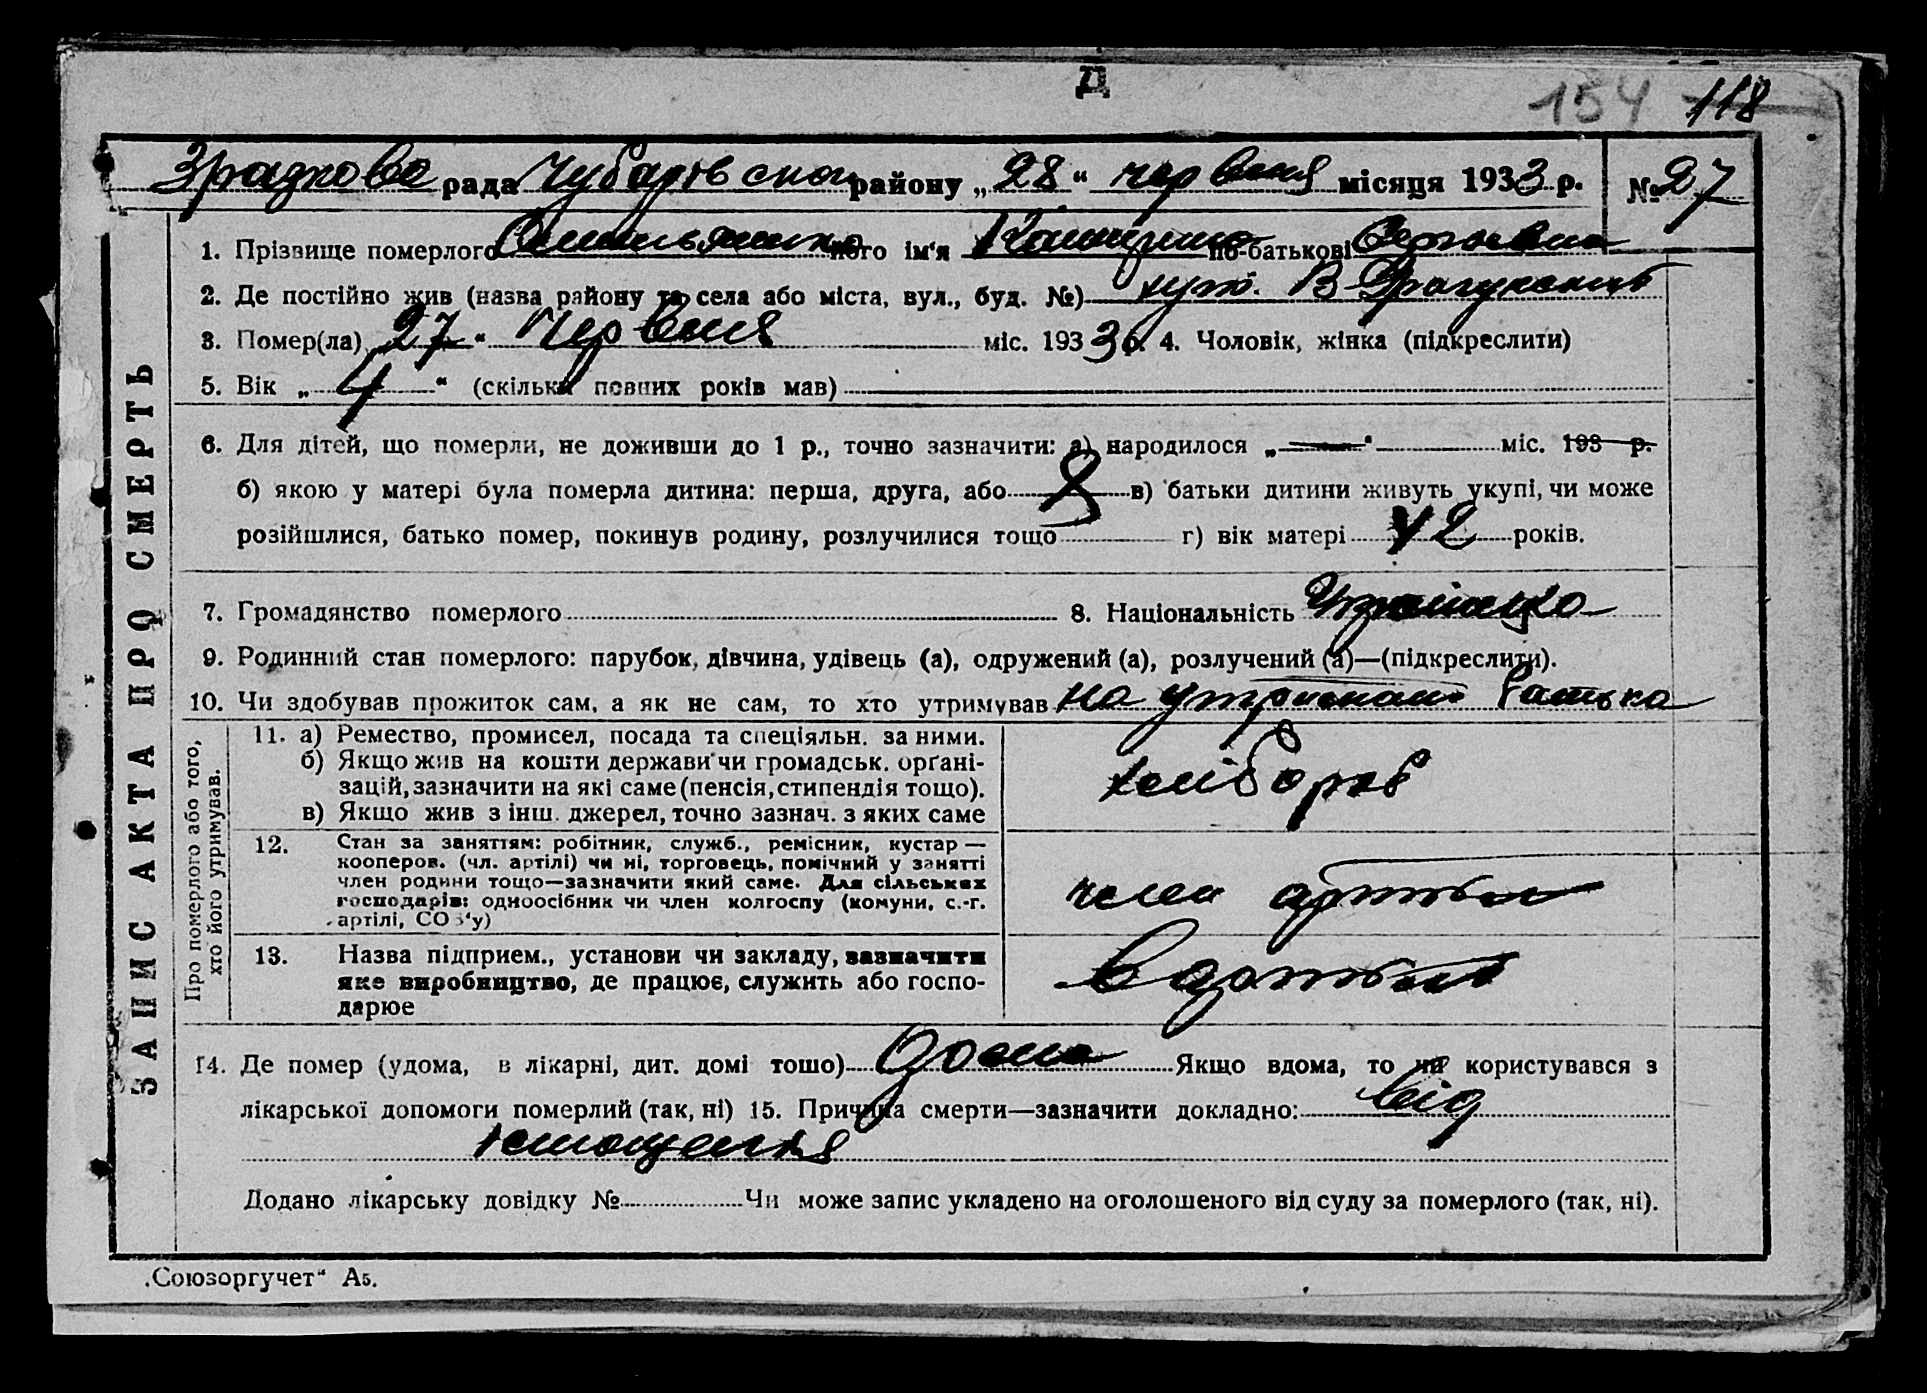 Д
154 118
Зразкова рада Чубарівськог району „28“ червня місяця 1933 р. № 27
1. Прізвище померлого Омельяненко його ім‘я Катерина по-батькові Сергіевна
2. Де постійно жив (назва району та села або міста, вул., буд. №) хут. В
3. Помер(ла) „27“ Червня міс. 1933 р. 4. Чоловік, жінка (підкреслити)
5. Вік „4“ (скільки повних років мав)
6. Для дітей, що померли, не доживши до 1 р., точно зазначити: а) народилося „ “ міс. 193 р.
б) якою у матері була померла дитина: перша, друга, або 8 в) батьки дитини живуть укупі, чи може
розійшлися, батько помер, покинув родину, розлучилися тощо г) вік матері 42 років.
7. Громадянство померлого 8. Національність Українка
9. Родинний стан померлого: парубок, дівчина, удівець (а), одружений (а), розлучений (а)—(підкреслити).
10. Чи здобував прожиток сам, а як не сам, то хто утримував на утриманні батька
ЗАПИС АКТА ПРО СМЕРТЬ
Про померлого або того,
хто його утримував.
11. а) Ремество, промисел, посада та спеціяльн. за ними.
б) Якщо жив на кошти держави чи громадськ. орґані-
зацій, зазначити на які саме (пенсія, стипендія тощо).
в) Якщо жив з інш. джерел, точно зазнач. з яких саме
хлібороб
12. Стан за заняттям: робітник, служб., ремісник, кустар—
кооперов. (чл. артілі) чи ні, торговець, помічний у занятті
член родини тощо—зазначити який саме. Для сільських
господарів: одноосібник чи член колгоспу (комуни, с.-г.
артілі, СОЗ‘у)
член артели
13. Назва підприєм., установи чи закладу, зазначити
яке виробництво, де працює, служить або госпо-
дарює
в артели
14. Де помер (удома, в лікарні, дит. домі тощо) дома Якщо вдома, то чи користувався з
лікарської допомоги померлий (так, ні) 15. Причина смерти—зазначити докладно: від
истощення
Додано лікарську довідку № Чи може запис укладено на оголошеного від суду за померлого (так, ні).
„Союзоргучет“ А5.